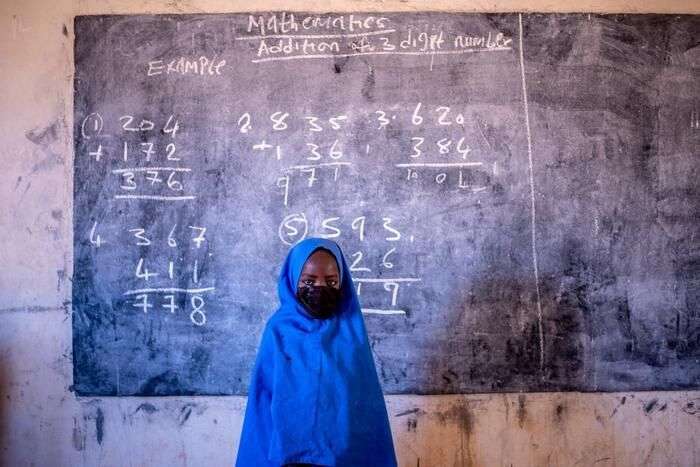 Mathematics
Addition of 3 digit number
EXAMPLE
(1) 204
+ 172
376
2. 835
+ 136
971
3. 620
384
100
4 367
411
778
(5) 593.
26
19